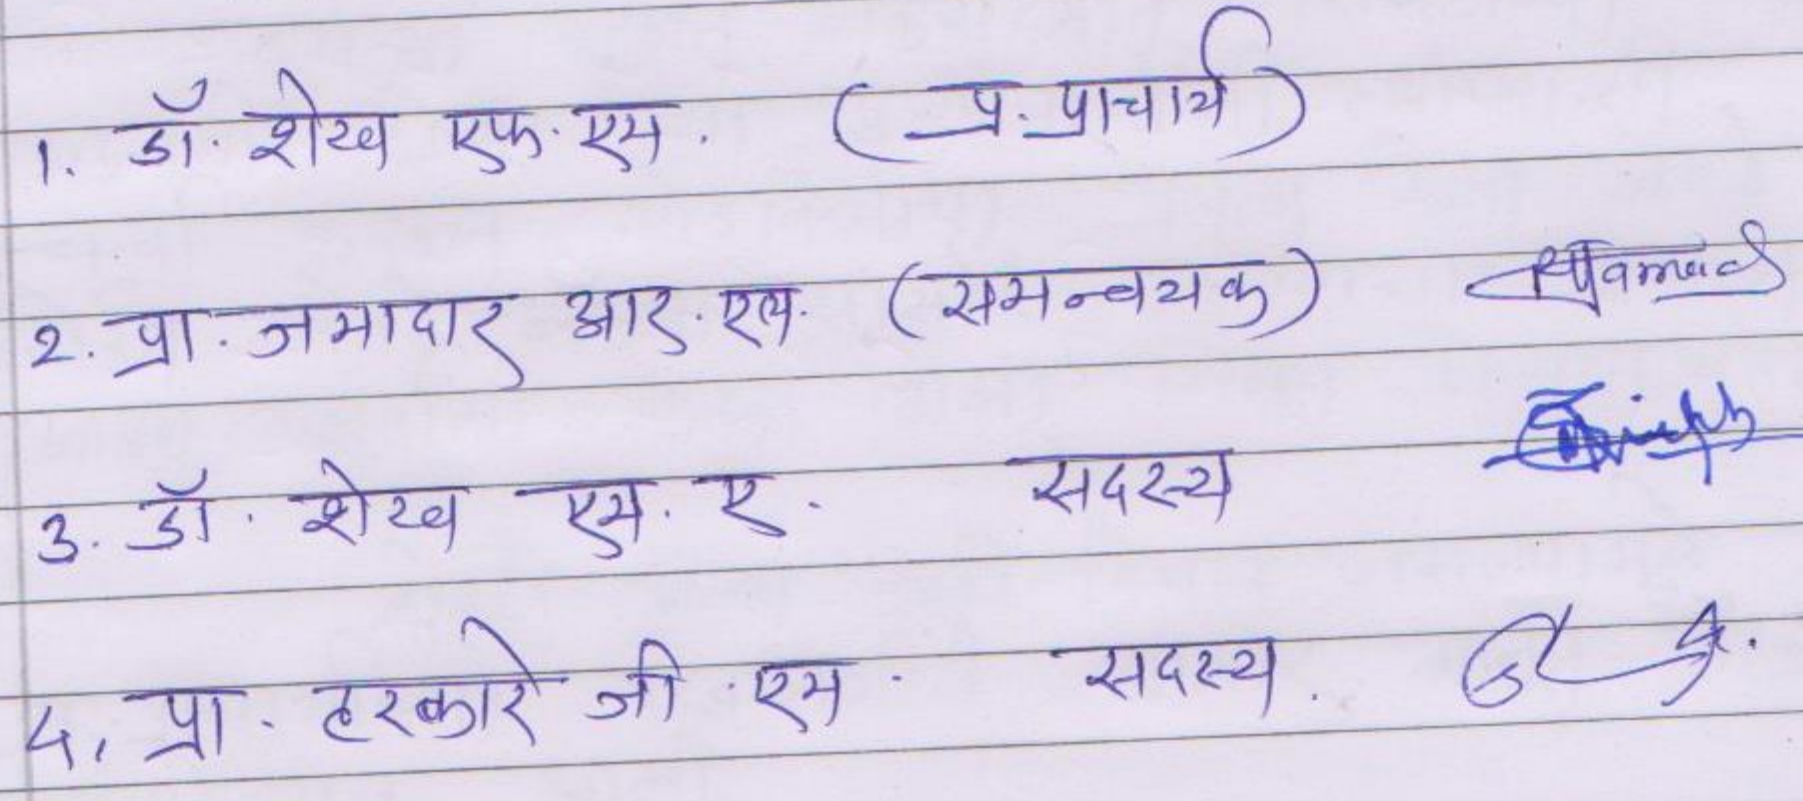 1. डॉ. शेख एफ. एम. (प्र. प्राचार्य)
2. प्रा. जमादार आर. एल. (समन्वयक)
3. डॉ. शेख एम. ए. सदस्य
4. प्रा. हरकारे जी. एम. सदस्य.